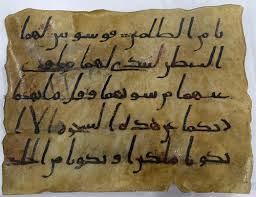 نا من الظلمين فوسوس لهما
الشيطن ليبدي لهما ما وري
عنهما من سوتهما وقل ما نهىكما
ربكما عن هذه الشجرة الا ا
تكونا ملكين او تكونا من الخلد